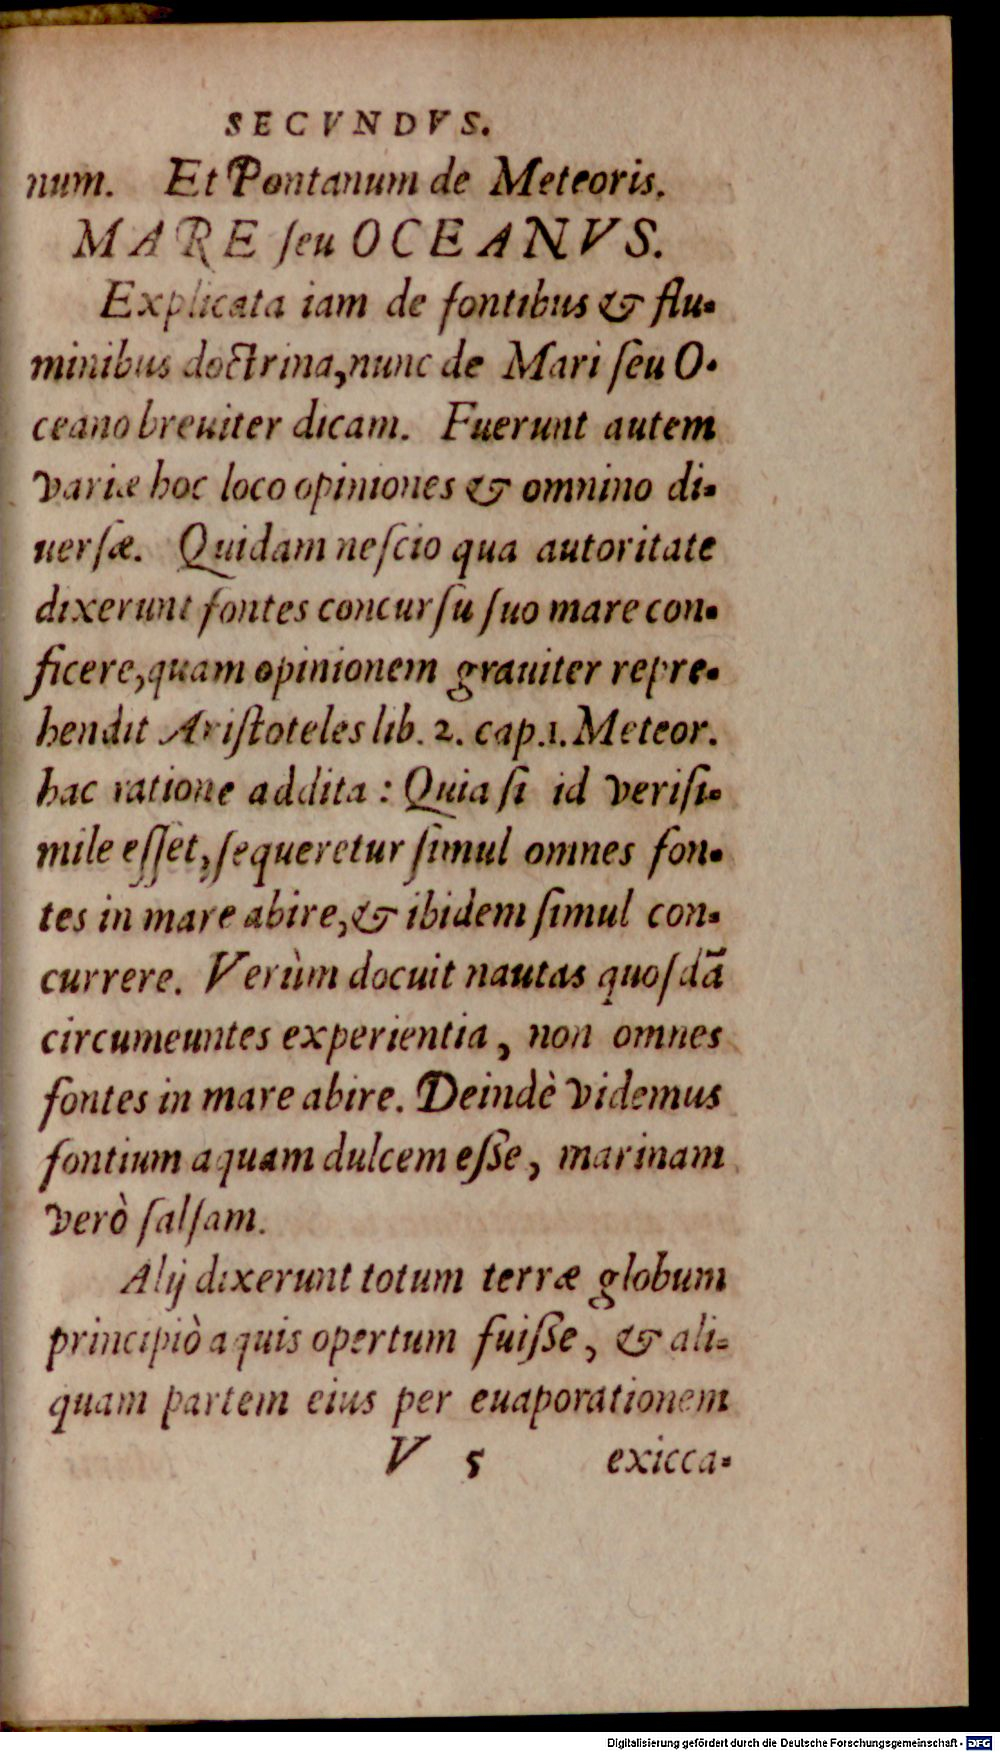 SECVNDVS.
num. Et Pontanum de Meteoris.
MARE ſeu OCEANVS.
Explicata iam de fontibus & flu-
minibus doctrina, nunc de Mari ſeu O-
ceano breuiter dicam. Fuerunt autem
variæ hoc loco opiniones & omnino di-
uerſæ. Quidam neſcio qua autoritate
dixerunt fontes concurſu ſuo mare con-
ficere, quam opinionem grauiter repre-
hendit Ariſtoteles lib. 2. cap. 1. Meteor.
hac ratione addita: Quia ſi id veriſi-
mile eſſet, ſequeretur ſimul omnes fon-
tes in mare abire, & ibidem ſimul con-
currere. Verùm docuit nautas quoſdã
circumeuntes experientia, non omnes
fontes in mare abire. Deindè videmus
fontium aquam dulcem eſſe, marinam
verò ſalſam.
Alij dixerunt totum terræ globum
principiò aquis opertum fuiſſe, & ali-
quam partem eius per euaporationem
V 5 exicca-
Digitalisierung gefördert durch die Deutsche Forschungsgemeinschaft - DFG